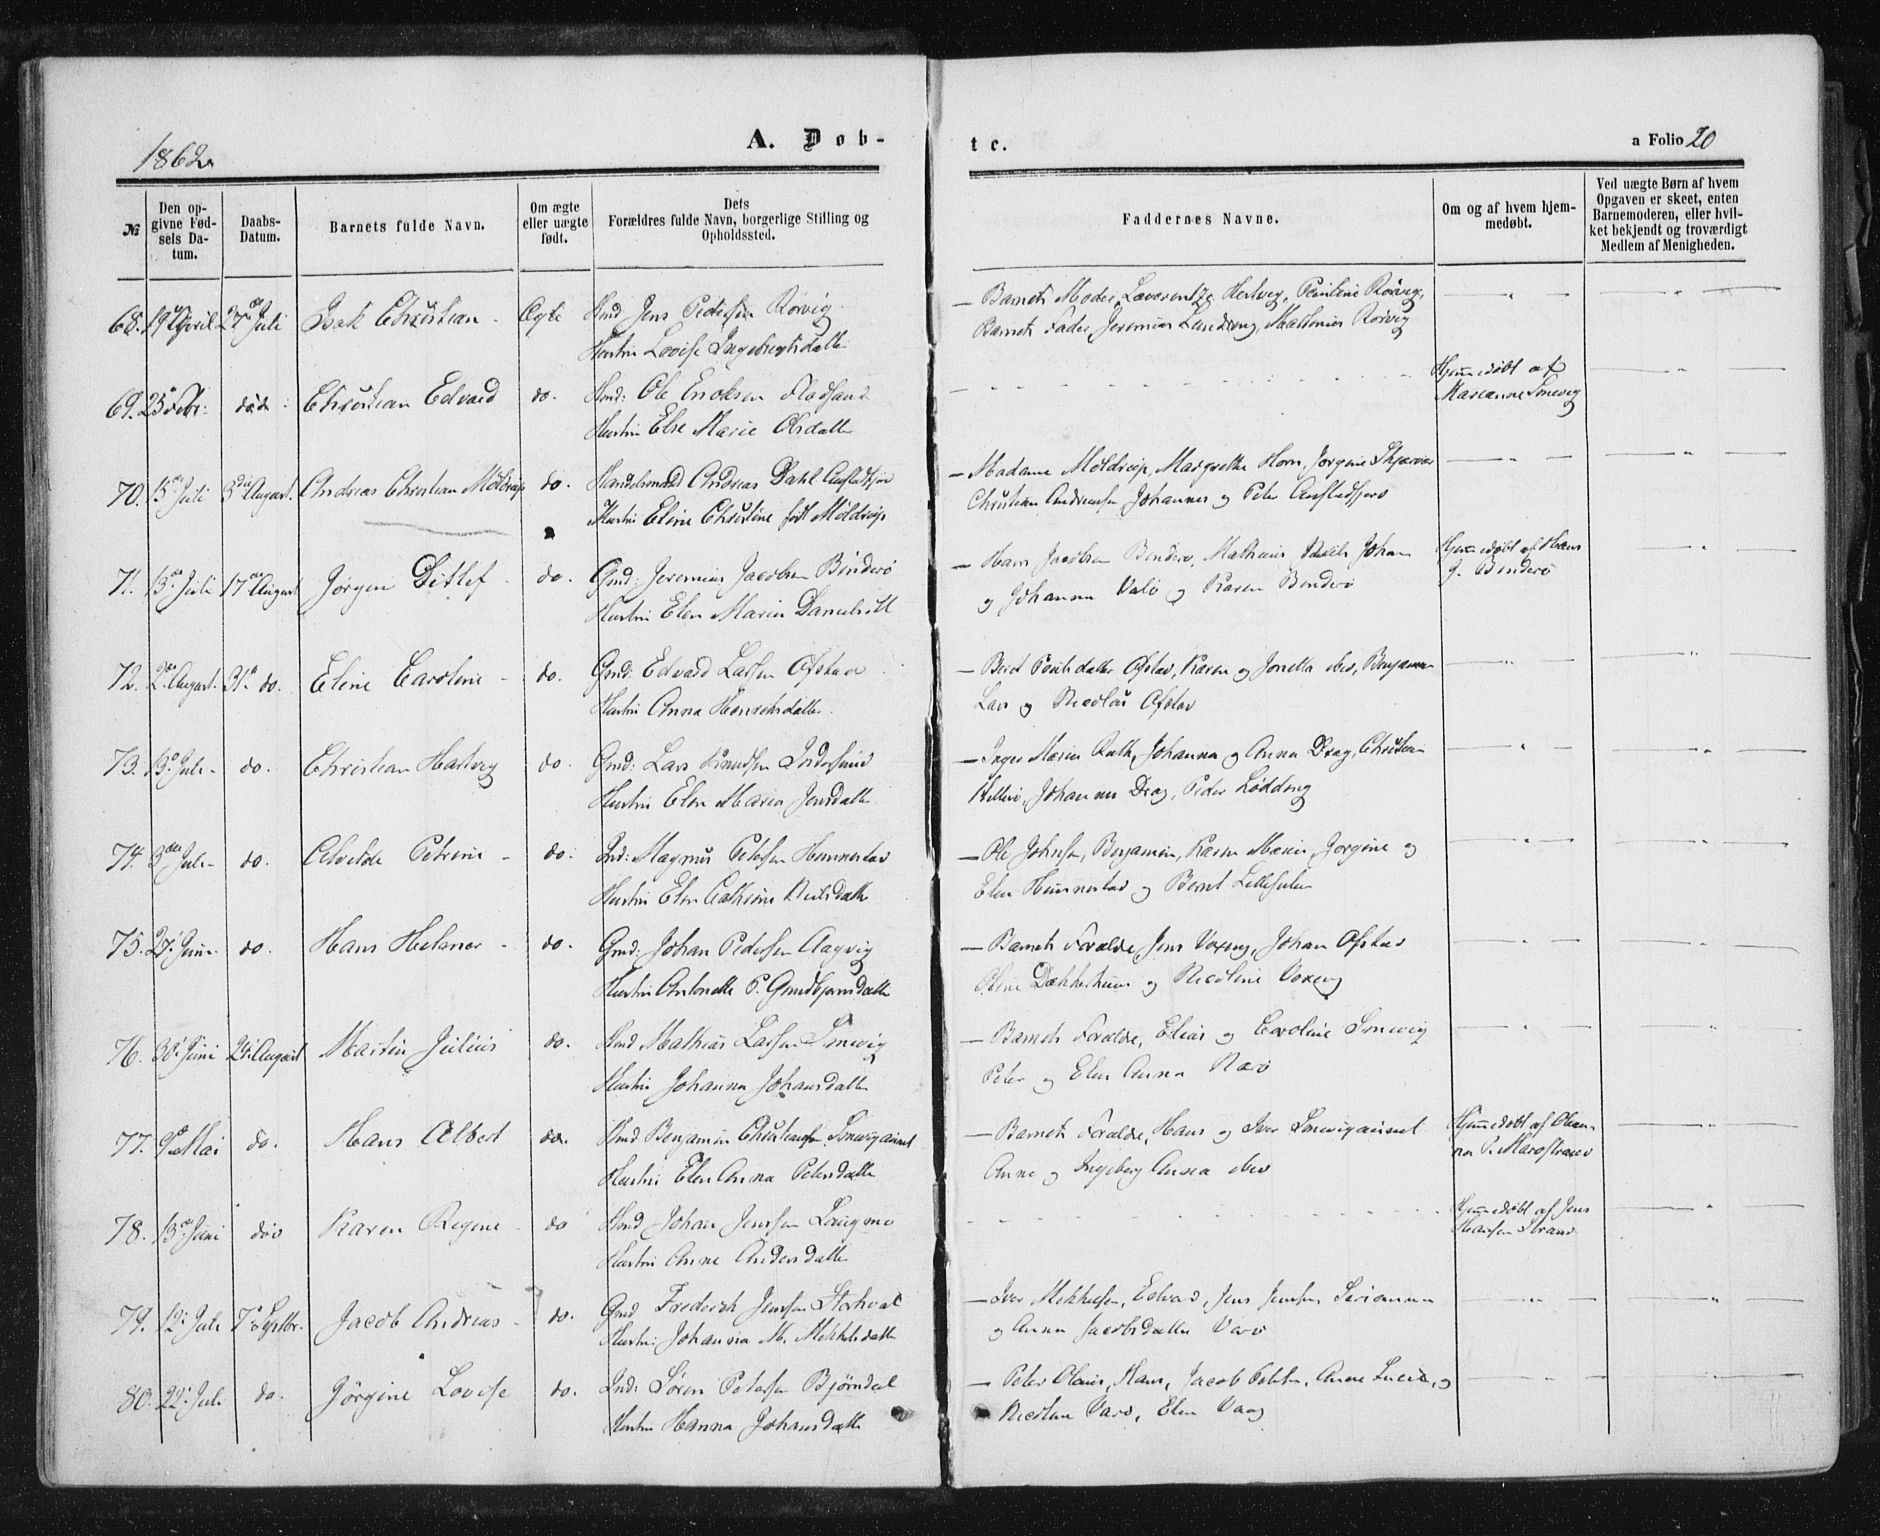 1862
A. Døb-
te.
a Folio 20
№
Den op-
givne Fød-
sels Da-
tum.
Daabs-
Datum.
Barnets fulde Navn.
Om ægte
eller uægte
født.
Dets
Forældres fulde Navn, borgerlige Stilling og
Opholdssted.
Faddernes Navne.
Om og af hvem hjem-
medøbt.
Ved uægte Børn af hvem
Opgaven er skeet, enten
Barnemoderen, eller hvil-
ket bekjendt og troværdigt
Medlem af Menigheden.
68. 19 April 27 Juli Isak Christian Ægte Hmd Jens Pedersen Rørvig
Hustru Lovise Ingebrigtsdatter
Barnets Moder, Hertvig, Pauline Rørvig,
Barnets Fader, Jeremias Mathias Rørvig
69. 25 Febr: død Christian Edvard do. Hmd: Ole Eriksen
Hustru Else Marie Olsdatter
Hjemmedøbt af
Marianne Smevig
70. 15 Juli 3die August. Andreas Christian Möldrup do. Handelsmand Andreas Dahl
Hustru Eline Christine født Möldrup
Madame Möldrup, Margrethe Horn, Jørgine
Christian Andreasen Johannes og Peter
71. 13 Juli 17 August Jørgen Ditlef do. Gmd: Jeremias Jacobsen Binderö
Hustru Elen Maria Danielsdtt
Hans Jacobsen Binderö, Mathias Johan
og Johanna Valö og Karen Binderö
Hjemmedøbt af Hans
J. Binderö
72. 2 August. 31 do. Eline Caroline do. Gmd: Edvard Larsen Ofstad
Hustru Anna Henriksdatter
Beret Ofstad, Karen og Jonetta ibid, Benjamin
Lars og Nicolai Ofstad
73. 13 Juli do. Christian Hartvig do. Gmd: Lars Knudsen
Hustru Elen Maria Jensdatter
Inger Maria Johanna og Anna Drag, Christen
Johannes Drag, Peder Lødding
74. 3die Juli do. Petrine do. Ind: Magnus Petersen Hunnestad
Hustru Elen Cathrine Nielsdatter
Ole Johnsen, Benjamin, Karen Maria, Jørgine og
Elen Hunnestad og Bernt
75. 27 Juni do. Hans Helmer do. Gmd: Johan Pedersen Aagvig
Hustru Antonette P. Gundbjørnsdatter
Barnets Forældre, Jens Voxeng, Johan Ofstad
Oline og Nicoline Voxeng
76. 30 Juni 24 August Martin Julius do. Hmd Mathias Larsen Smevig
Hustru Johanna Johansdatter
Barnets Forældre, Elias og Caroline Smevig
Peter og Elen Anna Nærö
77. 9 Mai do. Hans Albert do. Hmd Benjamin Christiansen
Hustru Elen Anna Petersdatter
Barnets Forældre, Hans og Iver
Anne og Ingeborg Anna ibid
Hjemmedøbt af
na P. Marostrand
78. 13 Juni død Karen Regine do Hmd Johan Jensen Langmo
Hustru Anne Andersdatter
Hjemmedøbt af Jens
Hansen Strand
79. 12 Juli 7 Septbr. Jacob Andreas do. Gmd Frederik Jenssen
Hustru Johanna M. Mikkelsdatter
Iver Mikkelsen, Edvard, Jens Jensen
og Anna Jacobsdatter Varö
80. 22 Juli do. Jörgine Lovise do. Ind: Sören Petersen Björndal
Hustru Hanna Johansdatter
Peter Olaus, Hans, Jacob Anne Lucia, og
Nicoline Varö, Elen Vaag